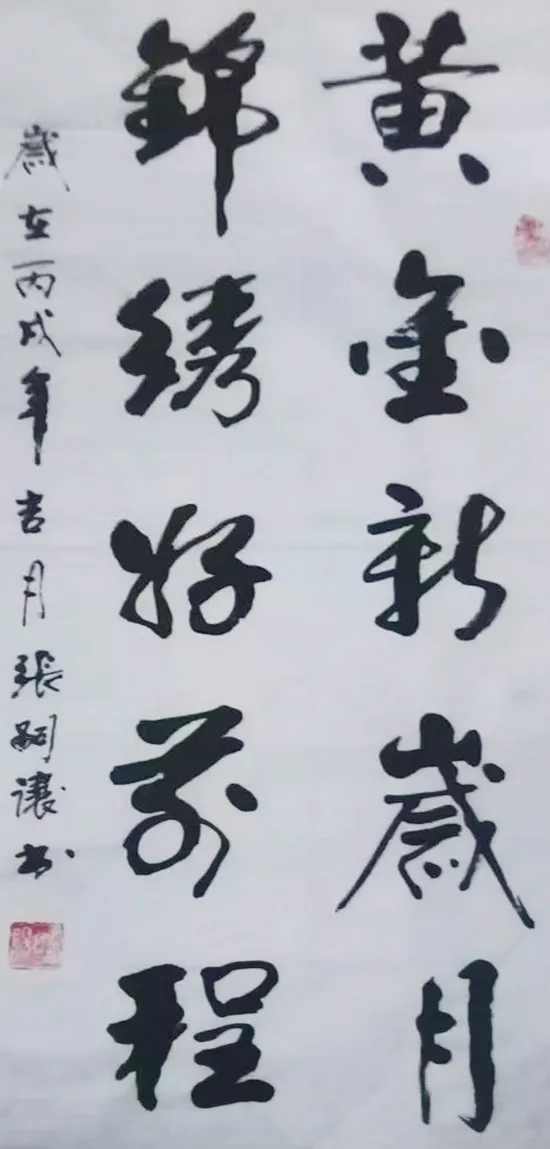 黄金新歲月
錦繡好前程
歲在丙戌年吉月張嗣讓书